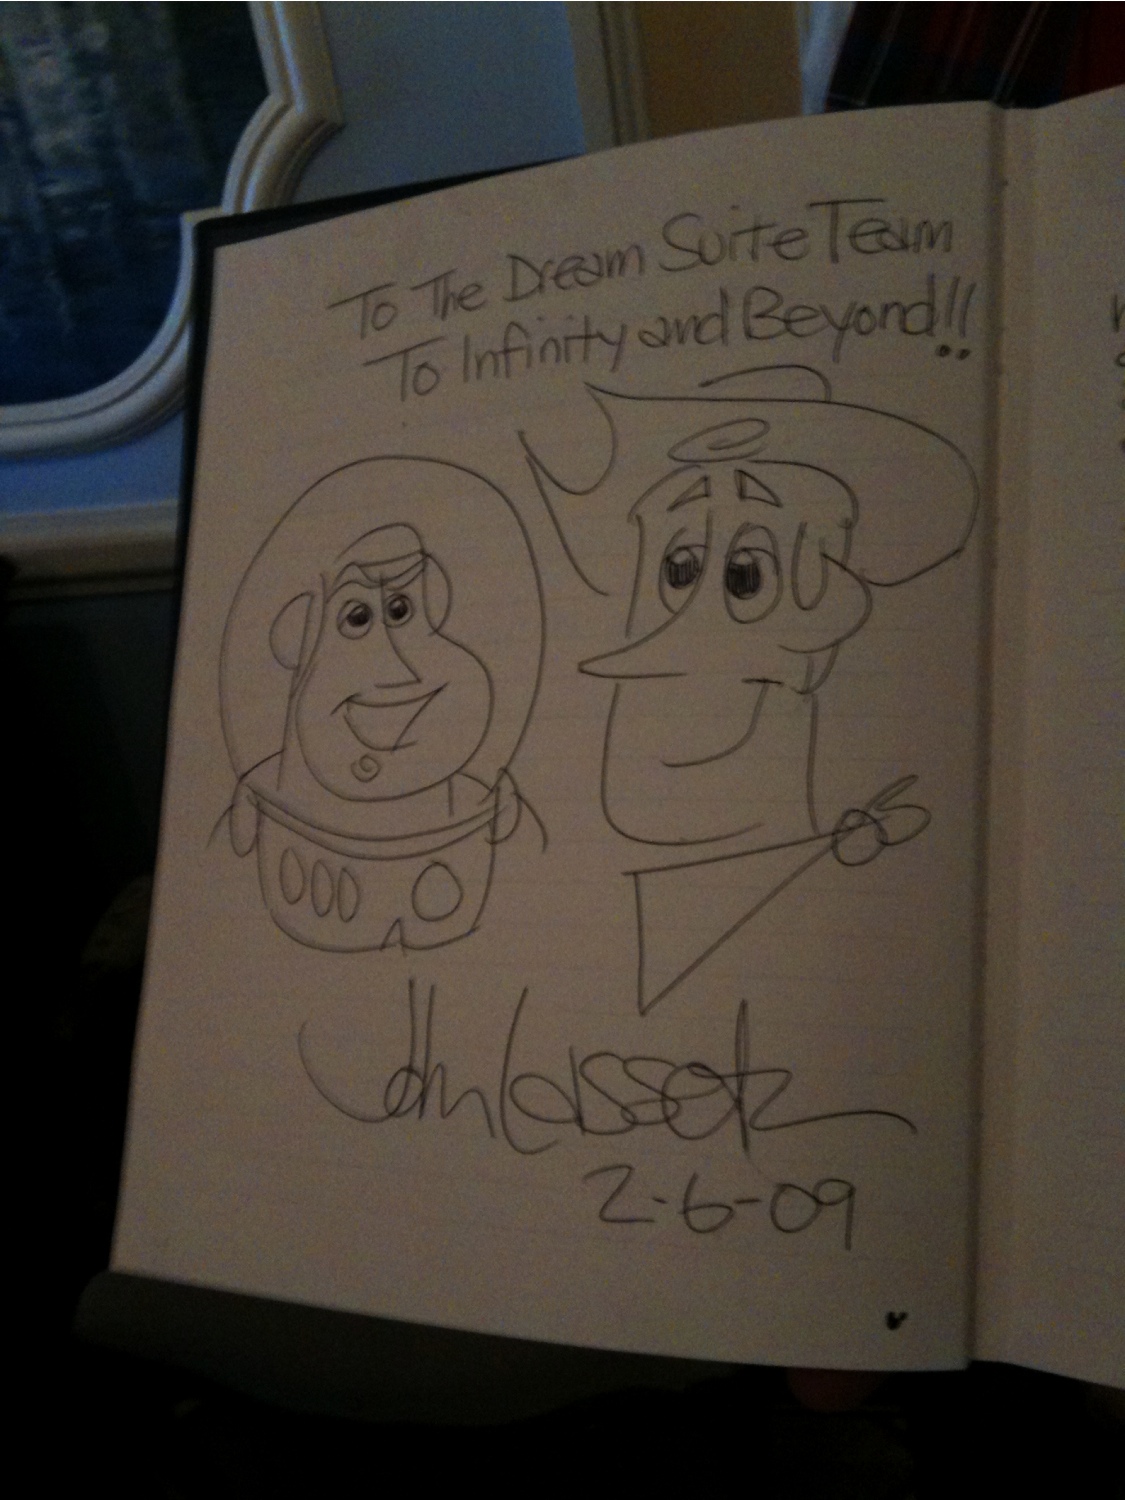 To The Dream Suite Team
To Infinity and Beyond!!
John Lasseter
2-6-09